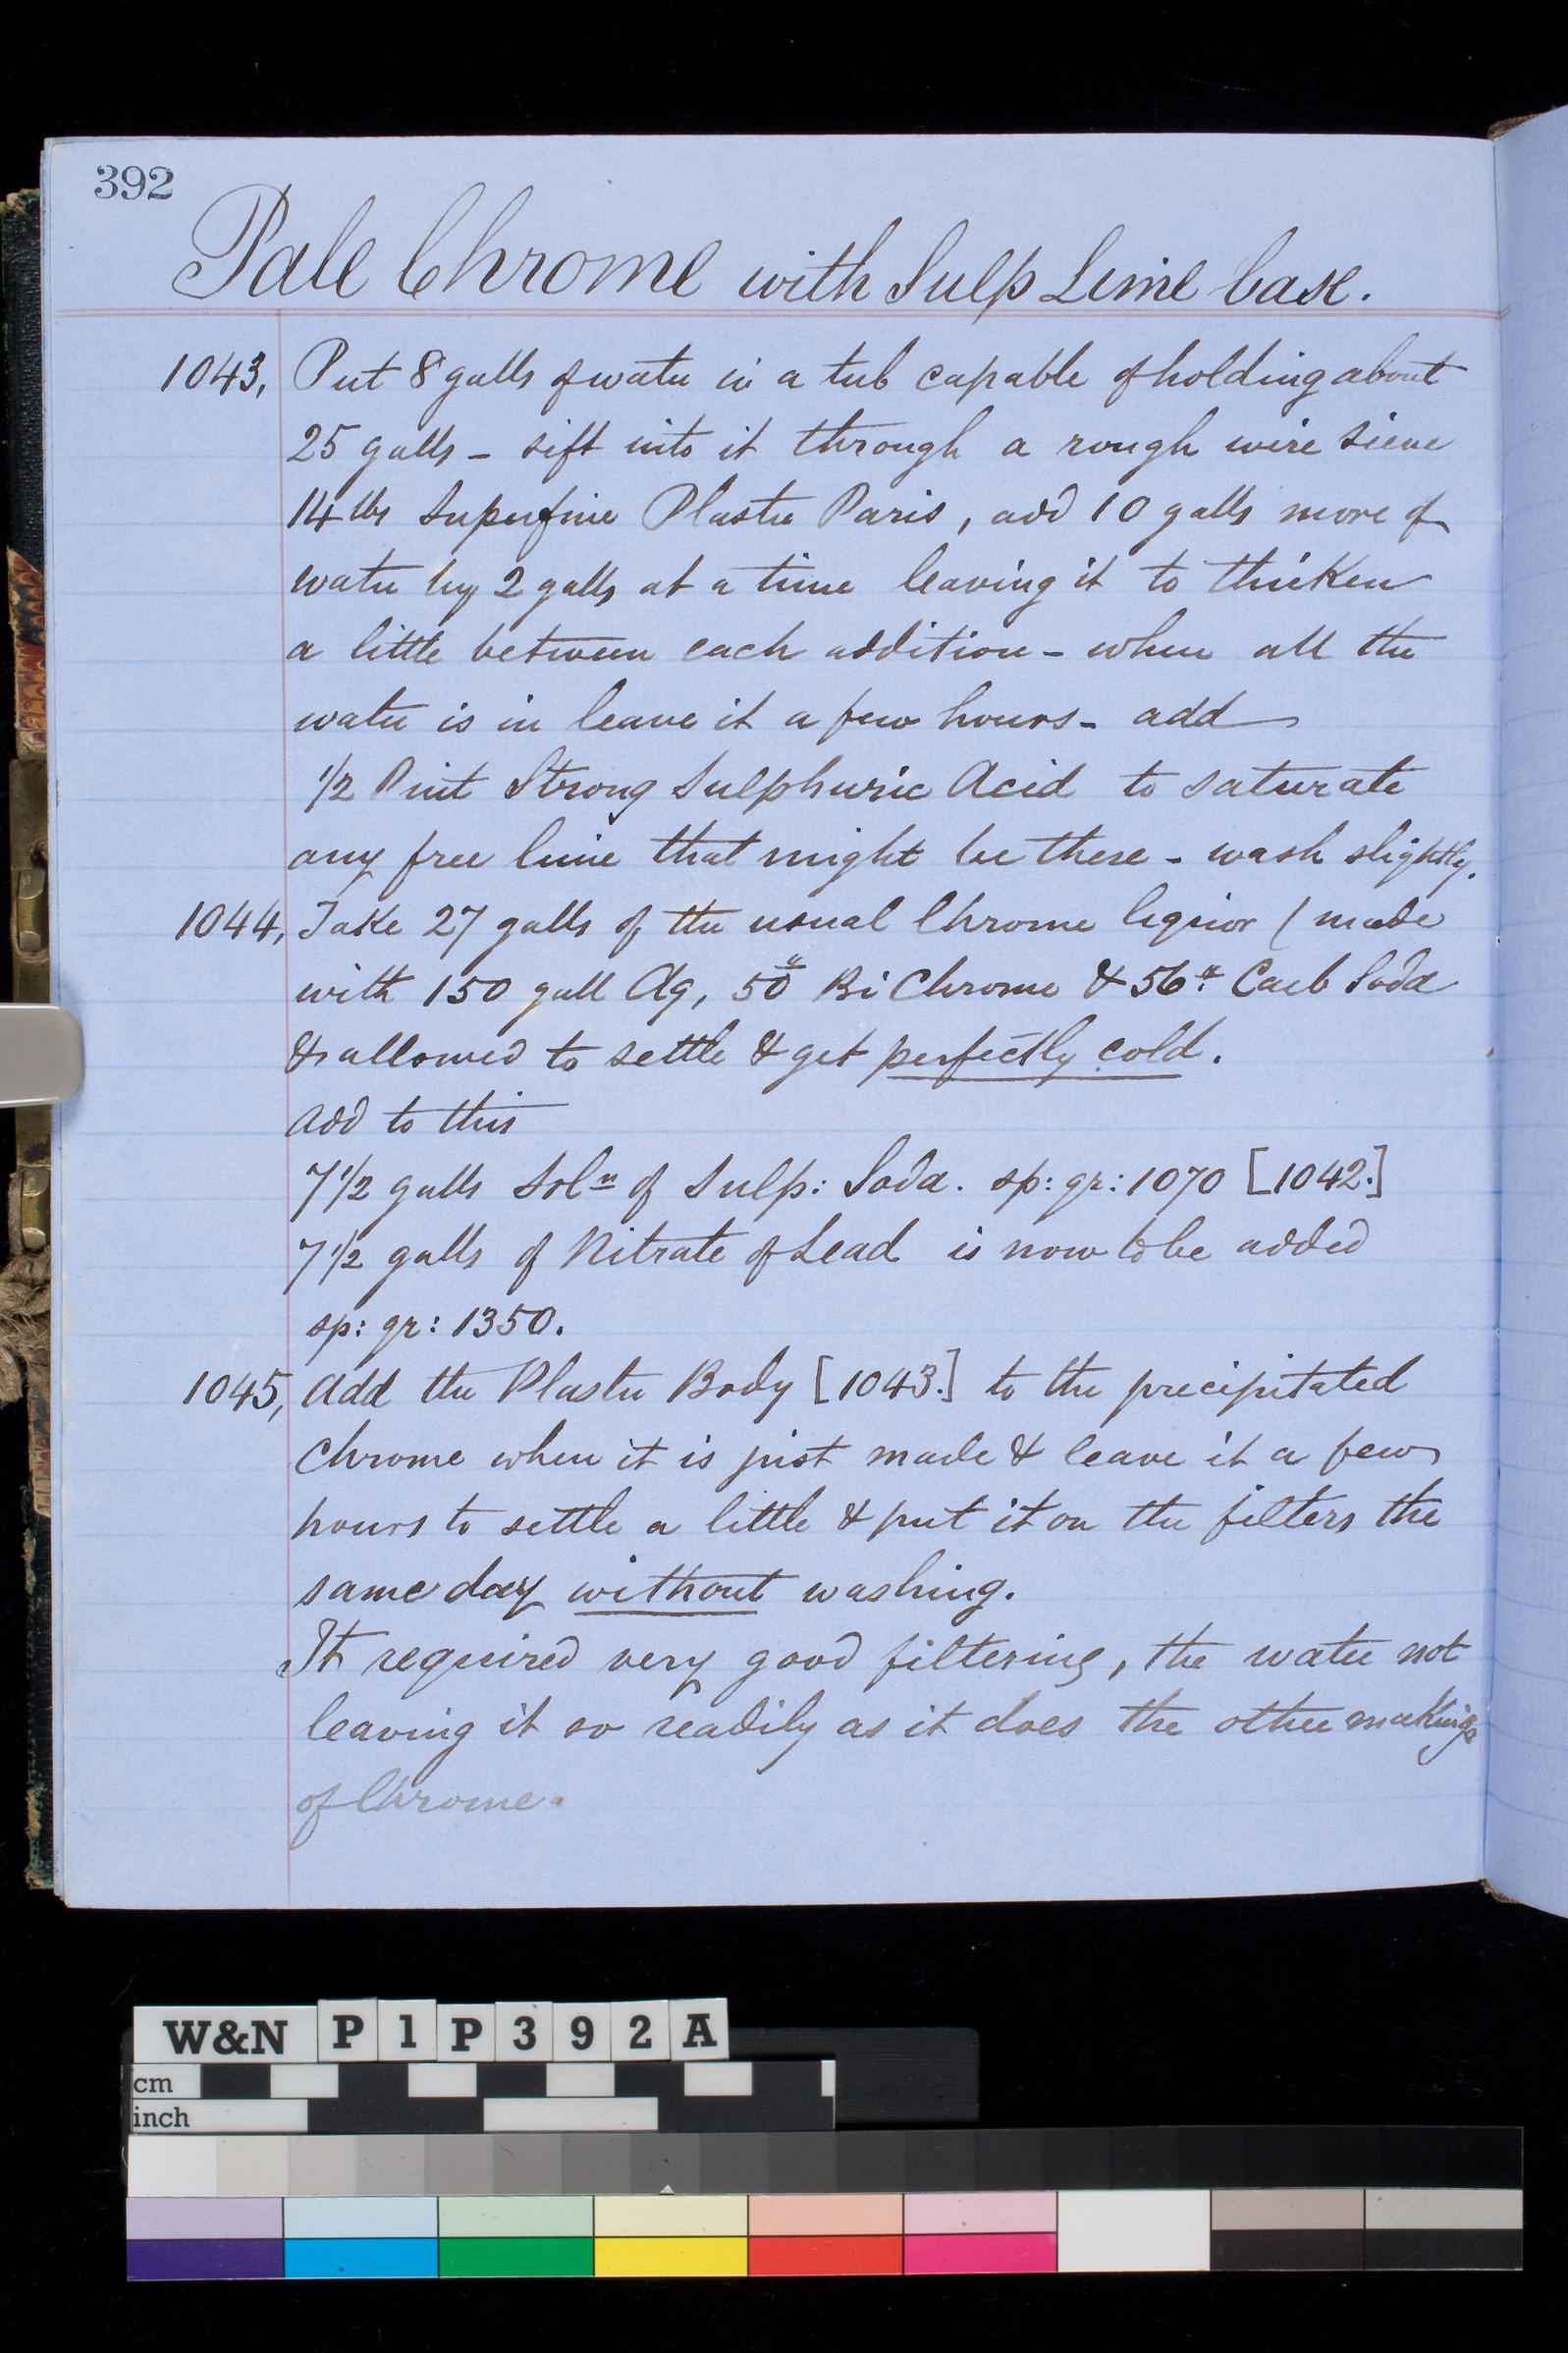 392
Pale Chrome with Sulp Lime base.
1043, Put 8 galls of water in a tub capable of holding about
25 galls – sift into it through a rough wire sieve
14 lbs Superfine Plaster Paris, add 10 galls more of
water by 2 galls at a time leaving it to thicken
a little between each addition – when all the
water is in leave it a few hours – add
1/2 Pint Strong Sulphuric Acid to saturate
any free lime that might be there – wash slightly.
1044, Take 27 galls of the usual Chrome liquor (made
with 150 gall Aq, 50 # Bi Chrome & 56 # Carb Soda
& allowed to settle & get perfectly cold.
Add to this
7 1/2 galls Soln of Sulp: Soda. sp: gr: 1070 [1042.]
7 1/2 galls of Nitrate of Lead is now to be added
sp: gr: 1350.
1045, Add the Plaster Body [1043.] to the precipitated
Chrome when it is just made & leave it a few
hours to settle a little & put it on the filters the
same day without washing.
It required very good filtering, the water not
leaving it so readily as it does the other makings
of Chrome.
W&N P1P392A
cm
inch